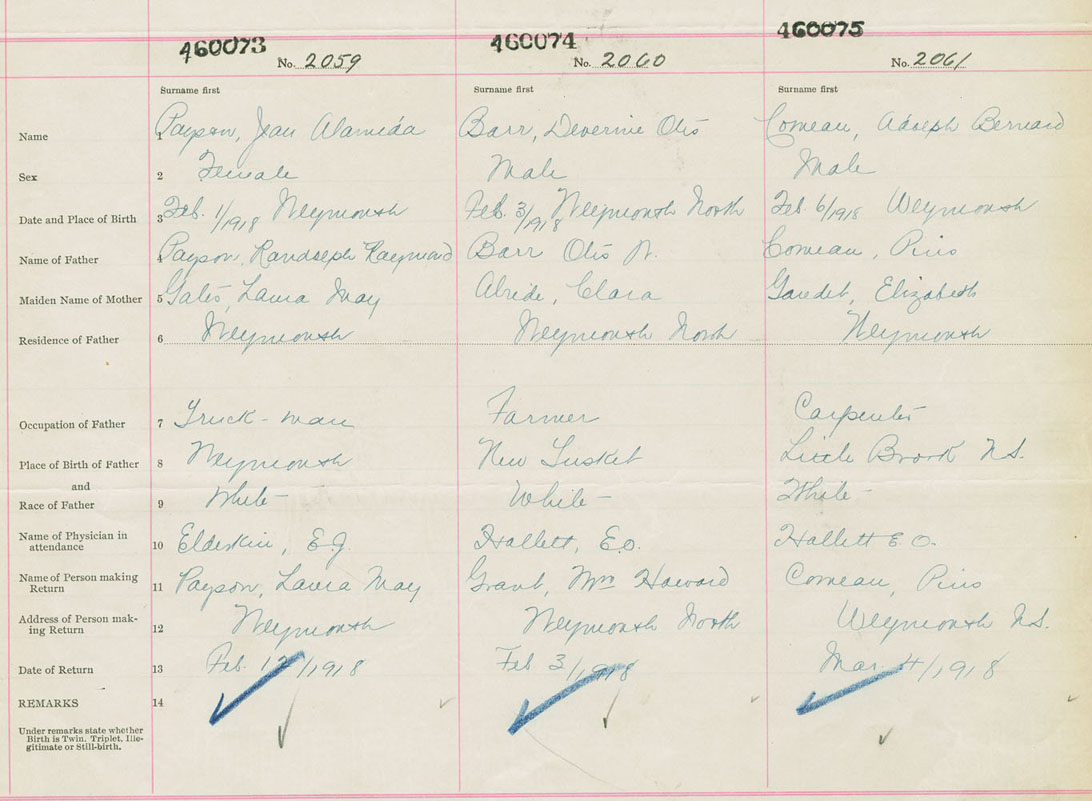 460073 460074 460075
No. 2059 No. 2060 No. 2061
Surname first Surname first Surname first
Name 1 Payson, Jean Alameda Barr, Devernie Otis Comeau, Adolph Bernard
Sex 2 Female Male Male
Date and Place of Birth 3 Feb. 1/1918 Weymouth Feb. 3/1918 Weymouth North Feb 6/1918 Weymouth
Name of Father 4 Payson, Randolph Raymond Barr Otis Comeau, Pius
Maiden Name of Mother 5 Gates, Laura May Clara Gaudet, Elizabeth
Residence of Father 6 Weymouth Weymouth North Weymouth
Occupation of Father 7 Truck-man Farmer Carpenter
Place of Birth of Father 8 Weymouth New Tusket Little Brook N.S.
and
Race of Father 9 White White White
Name of Physician in
attendance 10 Elderkin, E.J. Hallett, E.O. Hallett E O.
Name of Person making
Return 11 Payson, Laura May Grant, Mrs Howard Comeau, Pius
Address of Person mak-
ing Return 12 Weymouth Weymouth North Weymouth N.S.
Date of Return 13 Feb. 12/1918 Feb 3/1918 Mar. 4/1918
REMARKS 14
Under remarks state whether
Birth is Twin, Triplet, Ille-
gitimate or Still-birth.